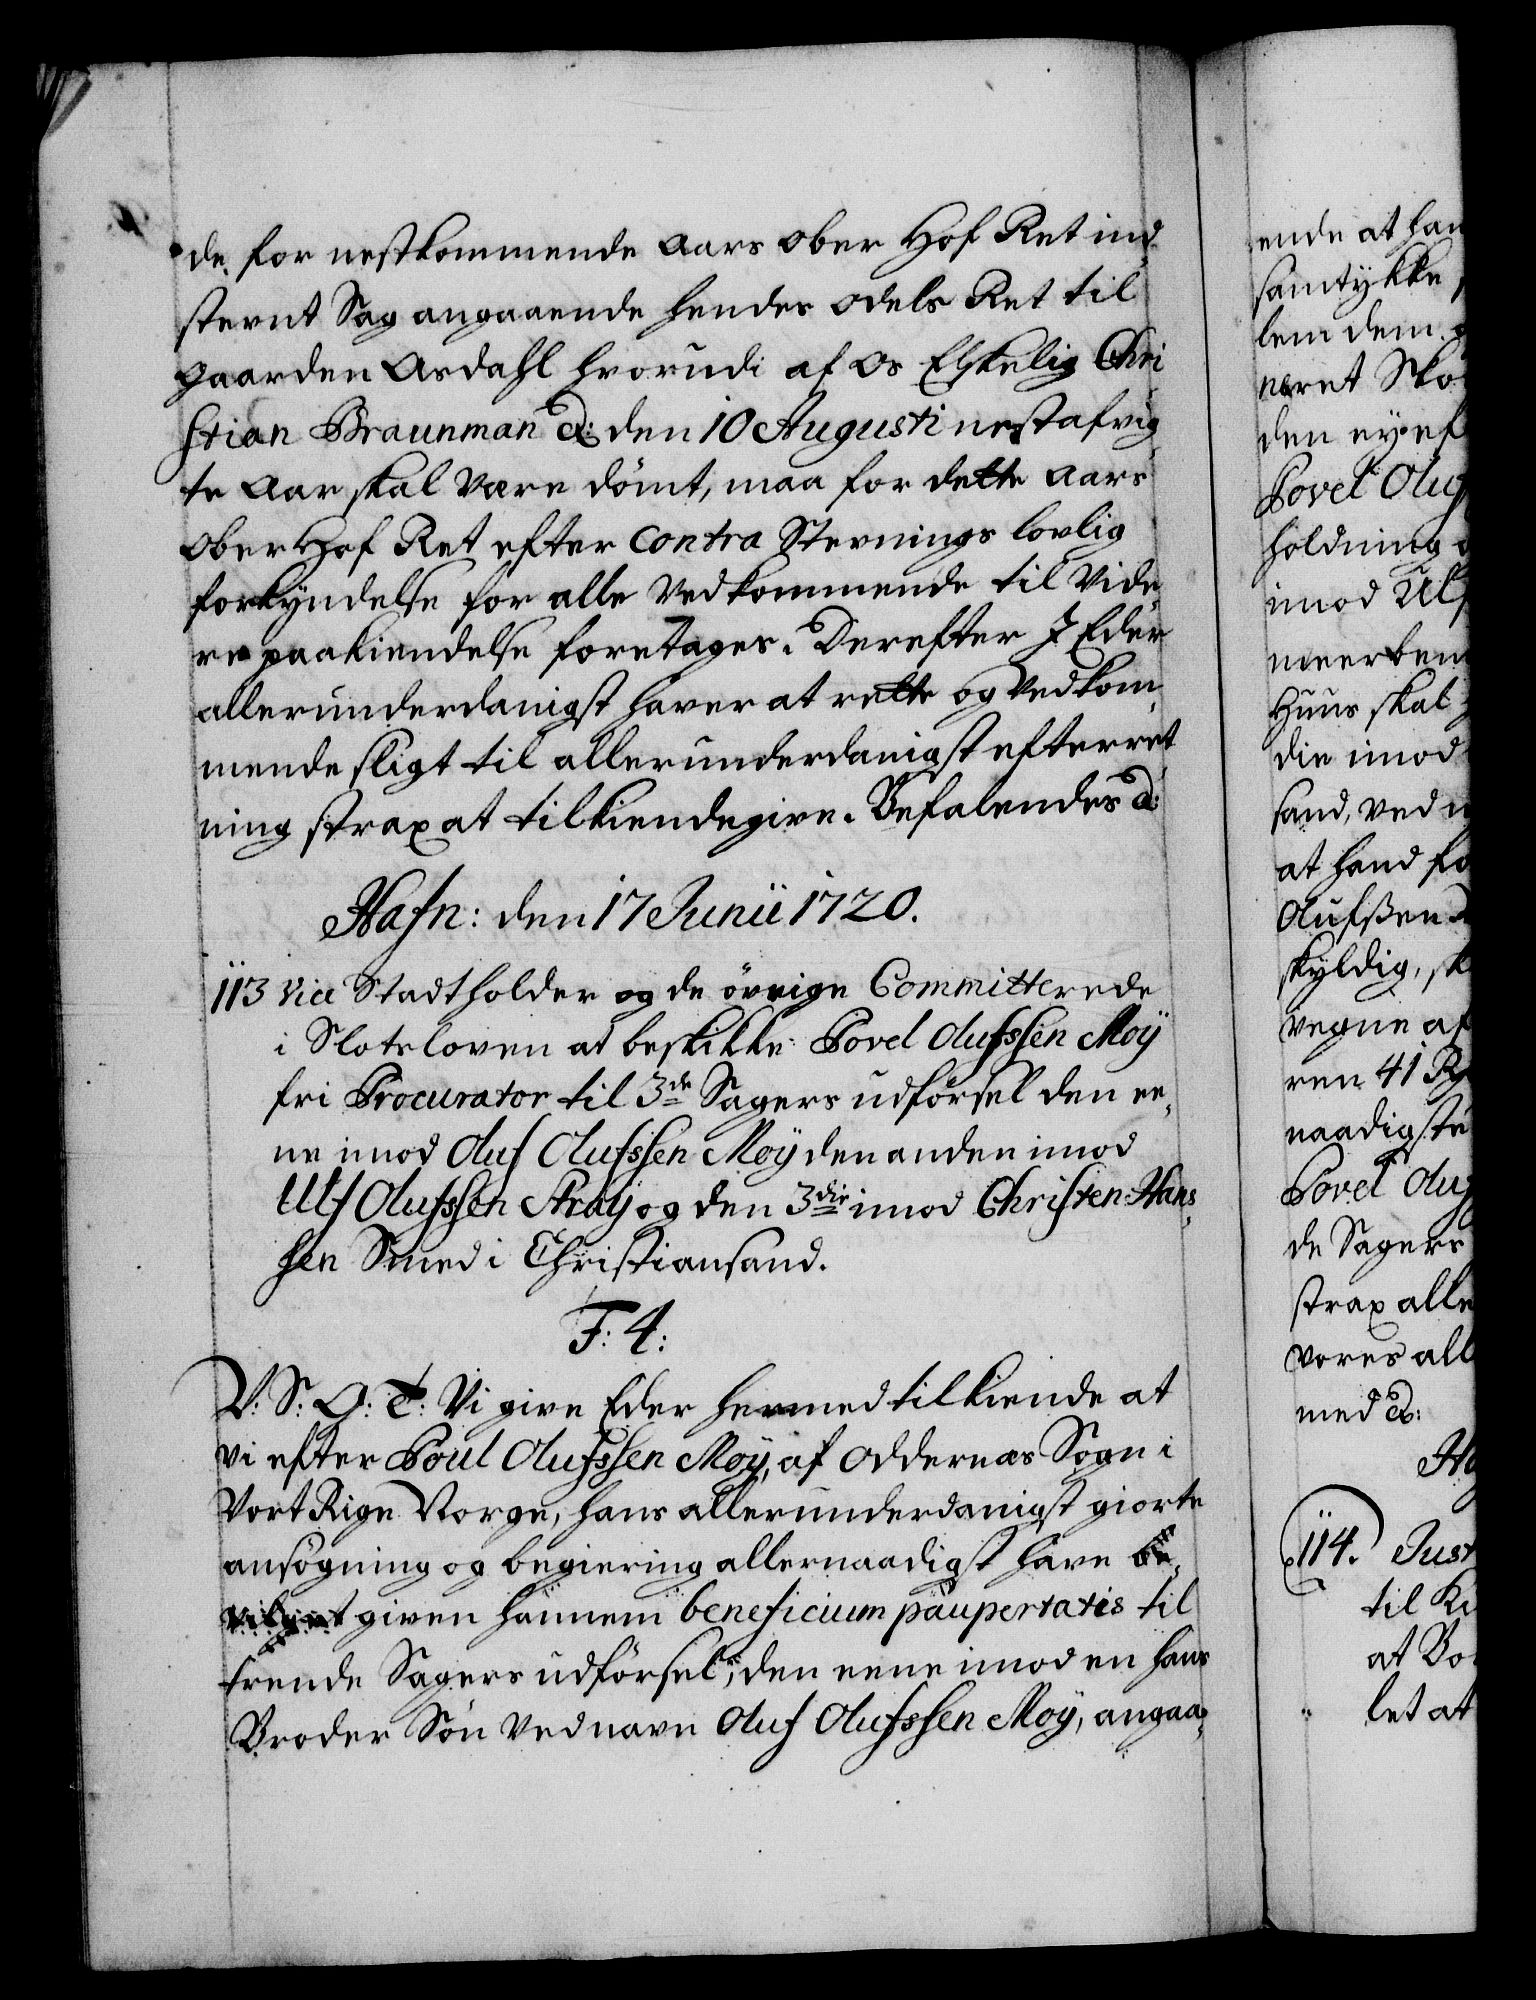 de for nestkommende Aars Ober Hof Ret ind
stevnt Sag angaaende hendes Odels Ret til
gaarden Asdahl hvorudi af Os Elskelig Chri
stian Braunman &: den 10 Augusti nest afvig
te Aar skal være dömt, maa for dette Aars
Ober Hof Ret efter Contra Stevnings lovlig
forkyndelse for alle Vedkommende til Vide
re paakiendelse foretages. Derefter I Eder
allerunderdanigst haver at rette og Vedkom
mende sligt til allerunderdanigst efterret
ning strax at tilkiendegive. Befalendes &:
Hafn: den 17 Junii 1720.
113 Vice Stadtholder og de övrige Committerede
i Slotsloven at beskikke Povel Olufssen Moÿ
fri Procurator til 3de Sagers udförsel den ee,
ne imod Oluf Olufssen Moÿ den anden imod
Ulf Olufssen Straÿ og den 3die imod Christen Hans
sen Smed i Christiansand.
F: 4:
V: S: G: T: Vi give Eder hermed tilkiende at
Vi efter Poul Olufssen Moÿ, af Oddernæs Sogn i
Vort Rige Norge, hans allerunderdanigst giorte
ansögning og begiering allernaadigst have be,
vilget given hannem beneficium paupertatis til
trende Sagers udförsel, den eene imod en hans
Broder Sön ved navn Oluf Olufssen Moÿ, angaa,
ende at han
samtykke
lem dem
været Sko
den eÿ ef
Povel Oluf
holdning
imod Ulf
meerbem
Huus skal
die imod
sand, ved
at hand fo
Olufsen
skyldig, sk
vegne af
ren 41 R
naadigste
Povel Oluf
de Sagers
strax alle
Vores all
med &:
114. Just
til Ki
at Bo
let at